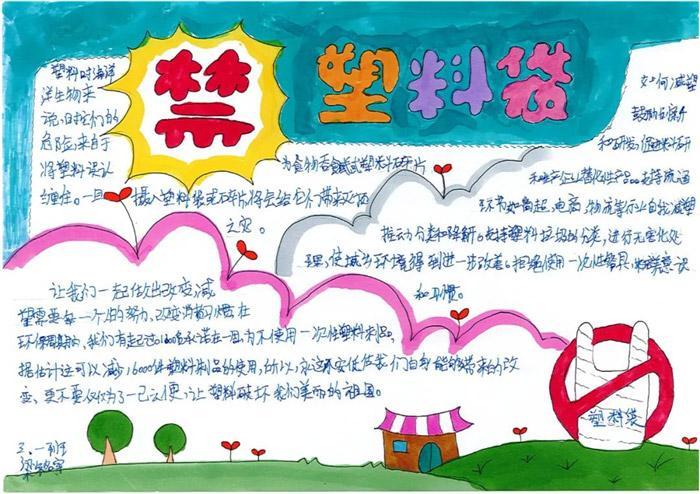 禁 塑料袋
塑料对海洋
洋生物来
说,日找们的
危险,来自于
将塑料误认
为食物或塑料碎片
缠住。一旦 摄入塑料袋或碎片,将会给它们带来
之灾。
如何减塑
鼓励创新
和研发,促进科研
和生产企业替代性产品。支持流通
环节如商超、电商、物流等行业自发减塑
推动分类和降解。支持塑料垃圾的分类,进行无害化处
理,使城乡环境得到进一步改善。拒绝使用一次性餐具,
和习惯。
让我们一起做出改变,减
塑需要每一个人的努力,改变消费习惯。在
环保周期内,我们有超过1000名承诺在一周内不使用一次性塑料制品。
据估计这可以减少16000件塑料制品的使用,所以,永远不要低估我们自身能够带来的改
变,更不要仅仅为了一己之便,让塑料破坏我们美丽的祖国。
塑料袋
三、一班